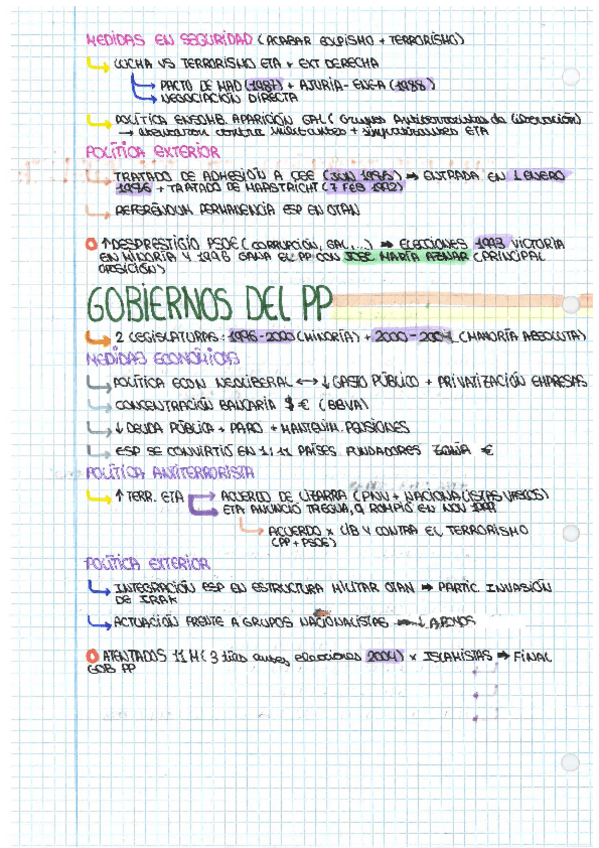 MEDIDAS EN SEGURIDAD (ACABAR GOLPISMO + TERRORISMO)
LUCHA VS TERRORISMO ETA + EXT DERECHA
PACTO DE MAD (1987) + AJURIA-ENEA (1988)
NEGOCIACIÓN DIRECTA
POLÍTICA ENSOMB. APARICIÓN GAL (Grupos Antiterroristas de Liberación)
→ atentaron contra militantes + simpatizantes ETA
POLÍTICA EXTERIOR
TRATADO DE ADHESIÓN A CEE (JUN 1985) ⇒ ENTRADA EN 1 ENERO
1986 + TRATADO DE MAASTRICHT (7 FEB 1992)
REFERÉNDUM PERMANENCIA ESP EN OTAN
↑ DESPRESTIGIO PSOE (CORRUPCIÓN, GAL,...) ⇒ ELECCIONES 1993 VICTORIA
EN MINORÍA Y 1996 GANA EL PP CON JOSÉ MARÍA AZNAR (PRINCIPAL
OPOSICIÓN)
GOBIERNOS DEL PP
2 LEGISLATURAS: 1996-2000 (MINORÍA) + 2000-2004 (MAYORÍA ABSOLUTA)
MEDIDAS ECONÓMICAS
POLÍTICA ECON NEOLIBERAL ↔ ↓ GASTO PÚBLICO + PRIVATIZACIÓN EMPRESAS
CONCENTRACIÓN BANCARIA $ € (BBVA)
↓ DEUDA PÚBLICA + PARO + MANTENIM. PENSIONES
ESP SE CONVIRTIÓ EN 1: 11 PAÍSES FUNDADORES ZONA €
POLÍTICA ANTITERRORISTA
↑ TERR. ETA
ACUERDO DE LIZARRA (PNV + NACIONALISTAS VASCOS)
ETA ANUNCIÓ TREGUA, Q ROMPIÓ EN NOV 1999
ACUERDO x LIB Y CONTRA EL TERRORISMO
(PP + PSOE)
POLÍTICA EXTERIOR
INTEGRACIÓN ESP EN ESTRUCTURA MILITAR OTAN ⇒ PARTIC. INVASIÓN
DE IRAK
ACTUACIÓN FRENTE A GRUPOS NACIONALISTAS ⇒ ↓ APOYOS
ATENTADOS 11 M (3 días antes elecciones 2004) x ISLAMISTAS ⇒ FINAL
GOB PP